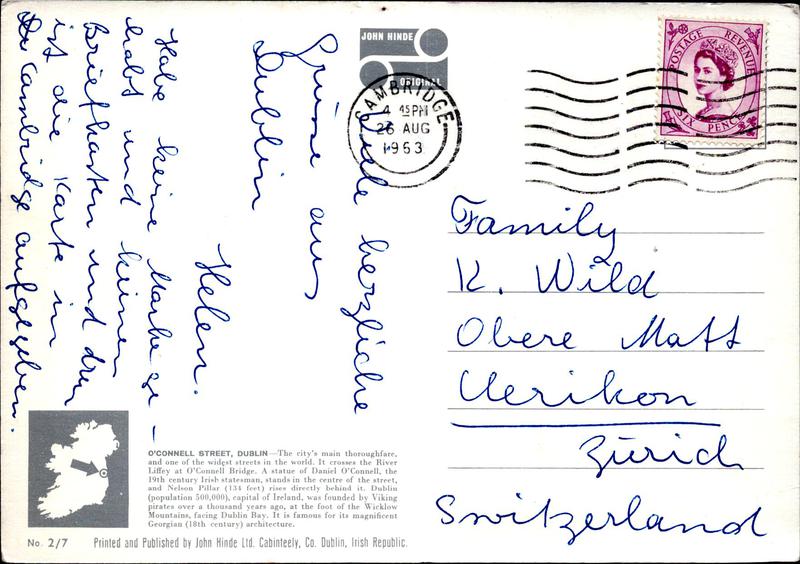 Viele herzliche
Grüsse aus
Dublin
Helen.
Habe keine Marke ge-
habt und keinen
Briefkasten und drum
ist die Karte in
Cambridge aufgegeben.
JOHN HINDE
ORIGINAL
CAMBRIDGE
4 45 PM
26 AUG
1963
POSTAGE REVENUE
SIX PENCE
Family
K. Wild
Obere Matt
Uerikon
Zürich
Switzerland
O'CONNELL STREET, DUBLIN—The city's main thoroughfare,
and one of the widest streets in the world. It crosses the River
Liffey at O'Connell Bridge. A statue of Daniel O'Connell, the
19th century Irish statesman, stands in the centre of the street,
and Nelson Pillar (134 feet) rises directly behind it. Dublin
(population 500,000), capital of Ireland, was founded by Viking
pirates over a thousand years ago, at the foot of the Wicklow
Mountains, facing Dublin Bay. It is famous for its magnificent
Georgian (18th century) architecture.
No. 2/7 Printed and Published by John Hinde Ltd. Cabinteely, Co. Dublin, Irish Republic.